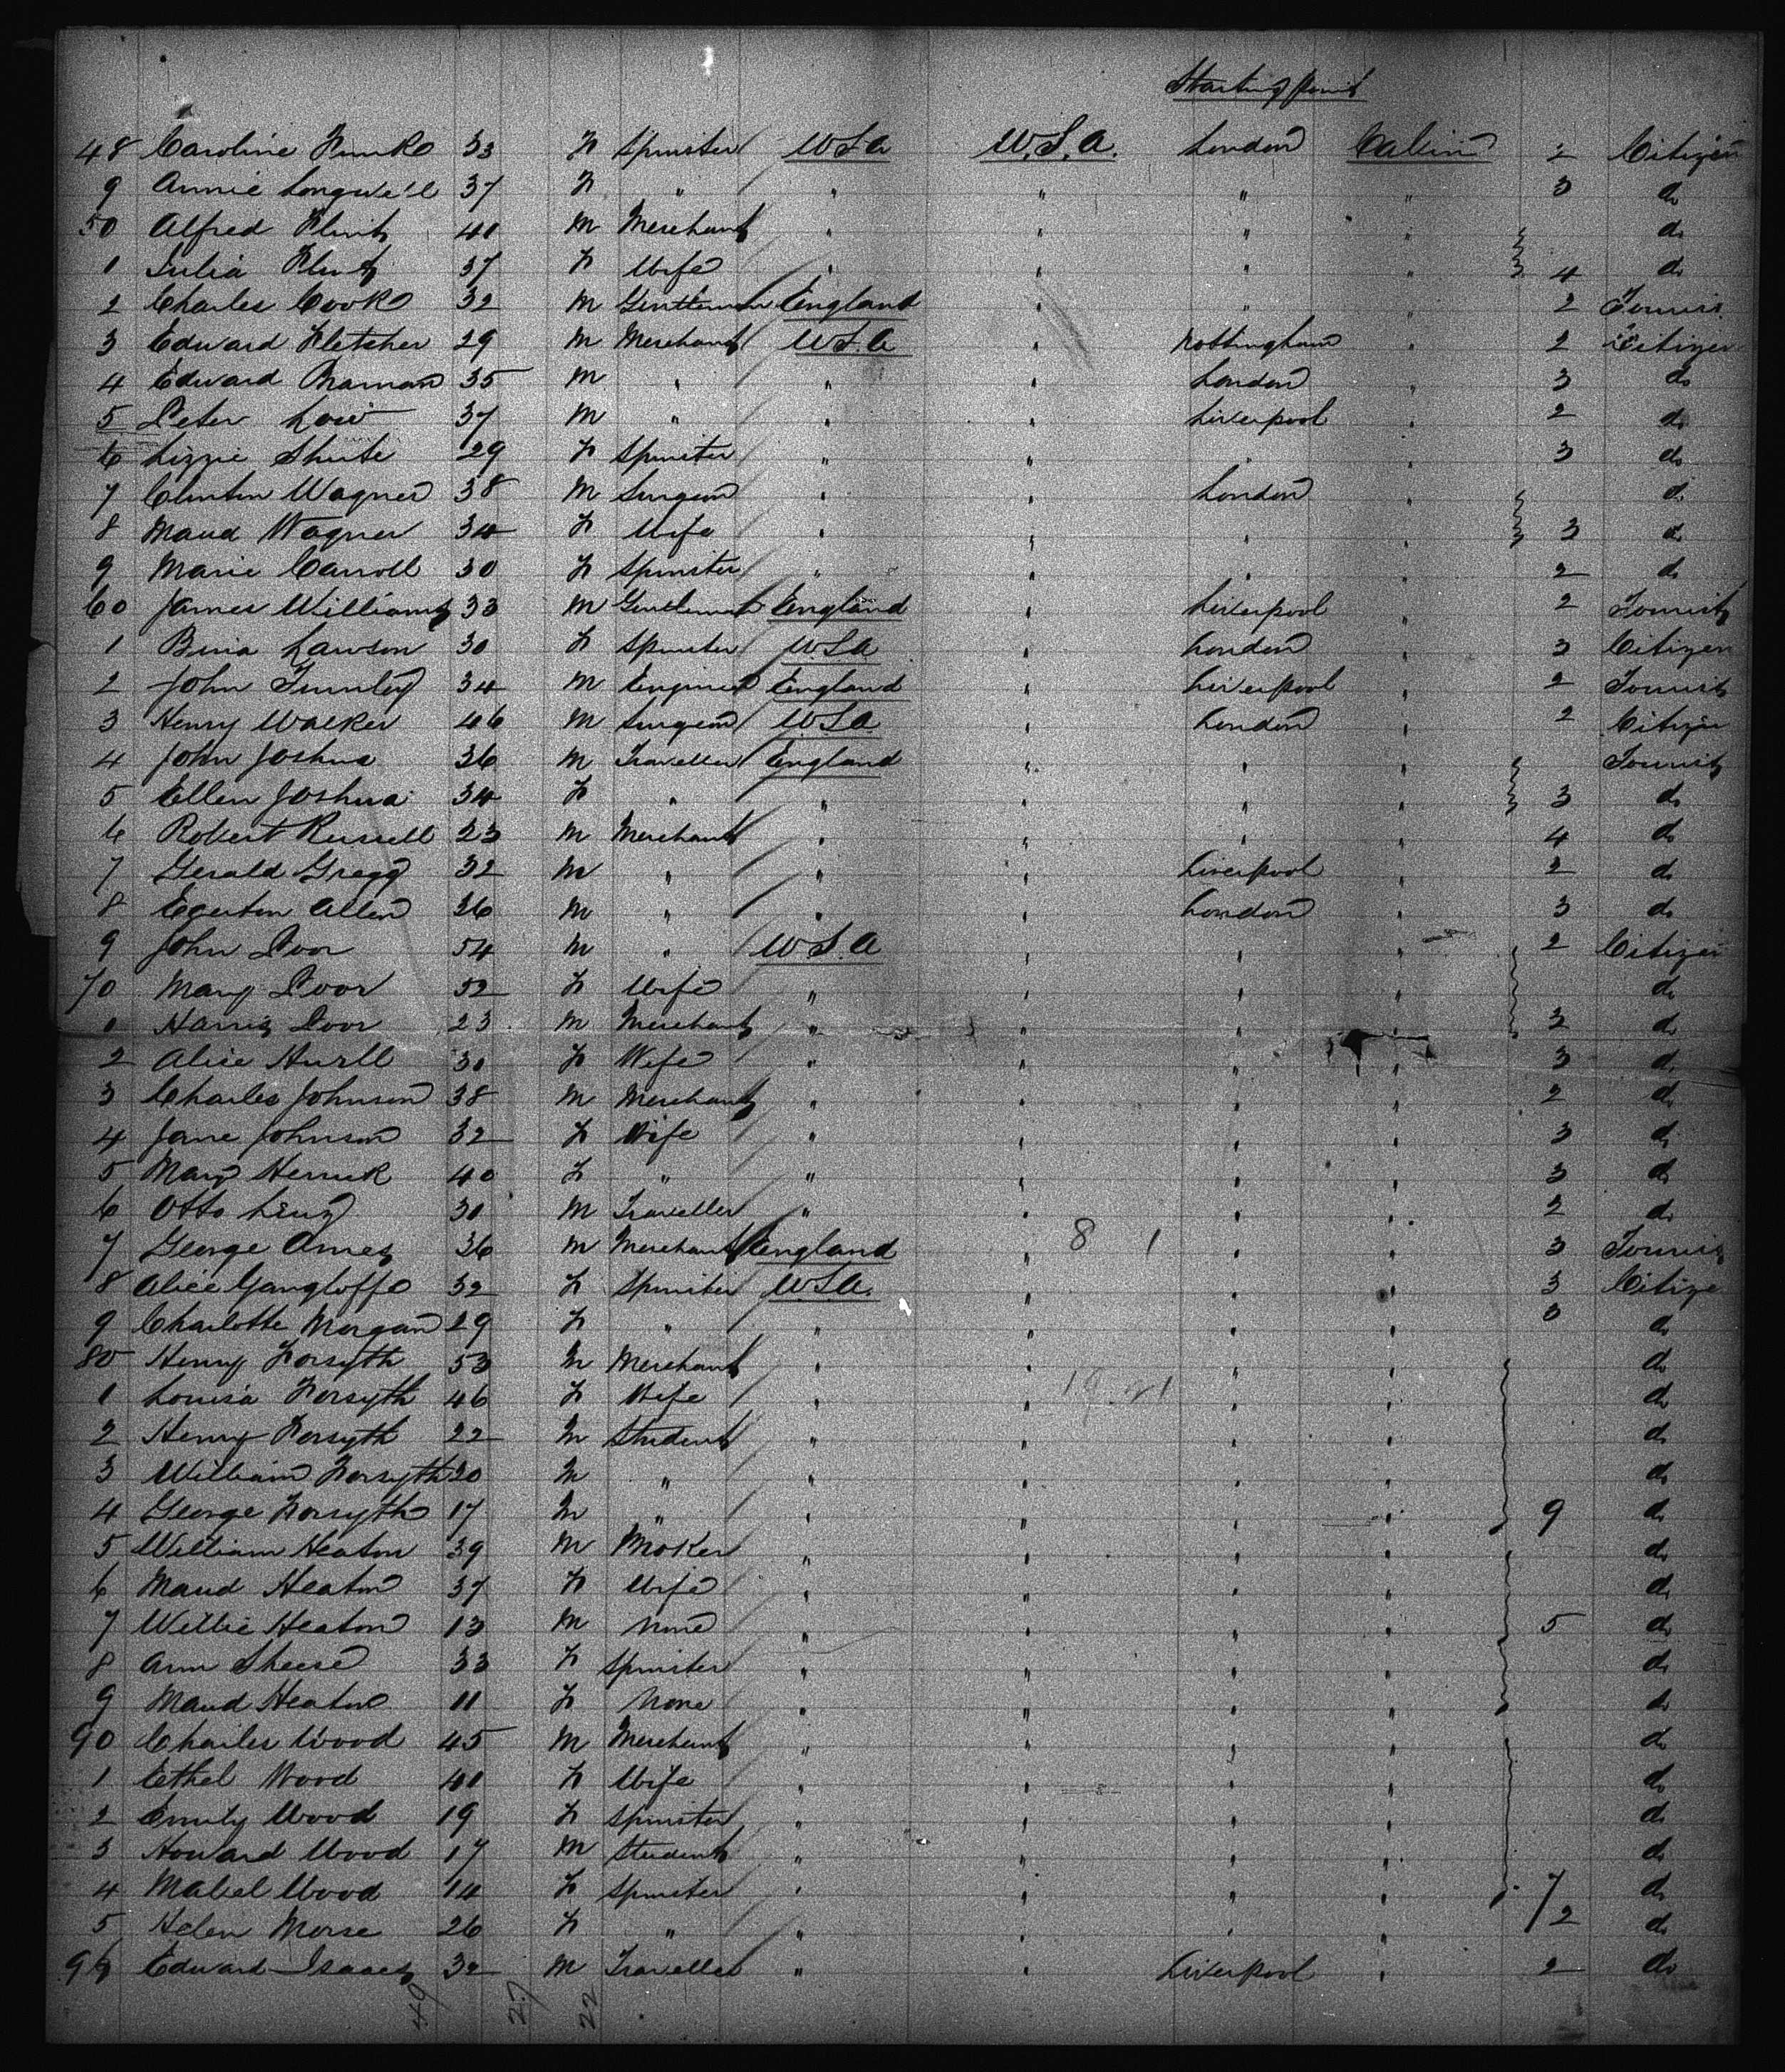 Starting point
48 Caroline Funke 33 F Spinster USA U.S.A. London Cabin 2 Citizen
9 Annie Longwell 37 F " " " " " 3 do
50 Alfred Flint 40 M Merchant " " " " do
1 Julia Flint 37 F Wife " " " " 4 do
2 Charles Cooke 32 M Gentleman England " " " 2 Tourist
3 Edward Fletcher 29 M Merchant U.S.A " Nottingham " 2 Citizen
4 Edward Braman 35 M " " " London " 3 do
5 Peter Low 37 M " " " Liverpool " 2 do
6 Lizzie Shute 29 F Spinster " " " " 3 do
7 Clinton Wagner 38 M Surgeon " " London " do
8 Maud Wagner 34 F Wife " " " " 3 do
9 Marie Carroll 30 F Spinster " " " " 2 do
60 James Williams 33 M Gentleman England " Liverpool " 2 Tourist
1 Bina Lawson 30 F Spinster U.S.A " London " 3 Citizen
2 John 34 M Engineer England " Liverpool " 2 Tourist
3 Henry Walker 46 M Surgeon U.S.A. " London " 2 Citizen
4 John Joshua 36 M Traveller England " " " Tourist
5 Ellen Joshua 34 F " " " " " 3 do
6 Robert Russell 23 M Merchant " " " " 4 do
7 Gerald Gregg 32 M " " " Liverpool " 2 do
8 Egerton Allen 36 M " " " London " 3 do
9 John Poor 54 M " U.S.A " " " 2 Citizen
70 Mary Poor 52 F Wife " " " " do
1 Harris Poor 23 M Merchant " " " " 3 do
2 Alice 30 F Wife " " " " 3 do
3 Charles Johnson 38 M Merchant " " " " 2 do
4 Jane Johnson 32 F Wife " " " " 3 do
5 Mary Herrick 40 F " " " " " 3 do
6 Otto Lenz 30 M Traveller " " " " 2 do
7 George Ames 36 M Merchant England " 8 1 " " 3 Tourist
8 Alice Gangloffe 32 F Spinster U.S.A. " " " 3 Citize
9 Charlotte Morgan 29 F " " " " " 3 do
80 Henry Forsyth 53 M Merchant " " " " do
1 Louisa Forsyth 46 F Wife " " " " do
2 Henry Forsyth 22 M Student " " " " do
3 William Forsyth 20 M " " " " " do
4 George Forsyth 17 M " " " " " 9 do
5 William Heaton 39 M Broker " " " " do
6 Maud Heaton 37 F Wife " " " " do
7 Willie Heaton 13 M None " " " " 5 do
8 Ann Sheese 33 F Spinster " " " " do
9 Maud Heaton 11 F None " " " " do
90 Charles Wood 45 M Merchant " " " " do
1 Ethel Wood 40 F Wife " " " " do
2 Emily Wood 19 F Spinster " " " " do
3 Howard Wood 17 M Student " " " " do
4 Mabel Wood 14 F Spinster " " " " 7 do
5 Helen Morse 26 F " " " " " 2 do
96 Edward Isaacs 32 M Traveller " " Liverpool " 2 do
49 27 22